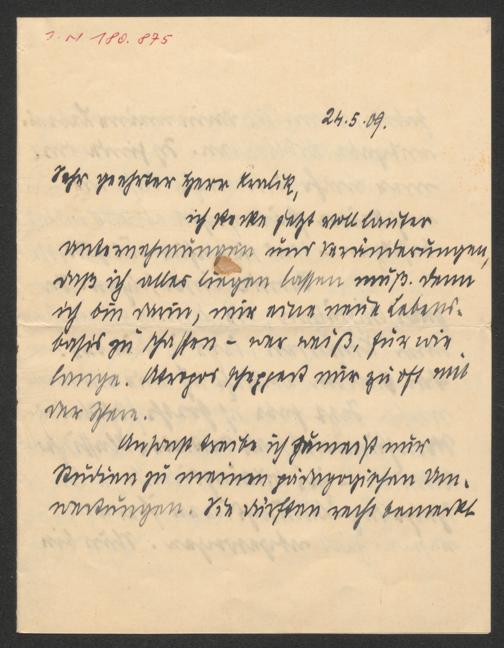 I. N 180.875
24.5.09.
Sehr geehrter Herr Kralik,
ich stecke jetzt voll lauter
Unternehmungen und Veränderungen,
daß ich alles liegen lassen muß. Denn
ich bin darin, mir eine neue Lebens-
basis zu schaffen – wer weiß, für wie
lange. Atropos scheppert nur zu oft mit
der Schere.
Ansonst treibe ich zumeist nur
Studien zu meinen pädagogischen Um-
wertungen. Sie dürften recht bemerkt